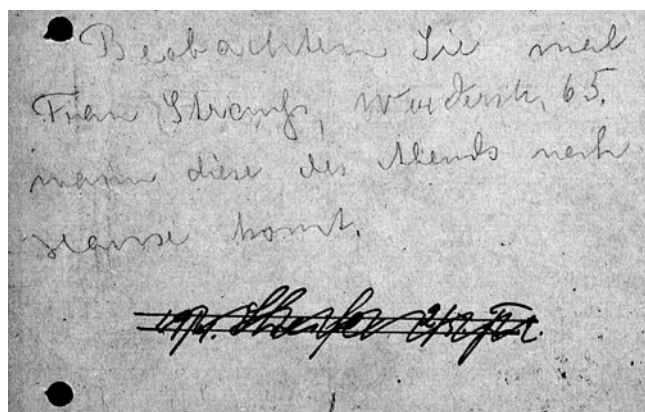 Beobachten Sie mal
Frau Strauß, Werderstr. 65.
wann diese des Abends nach
Hause komt.